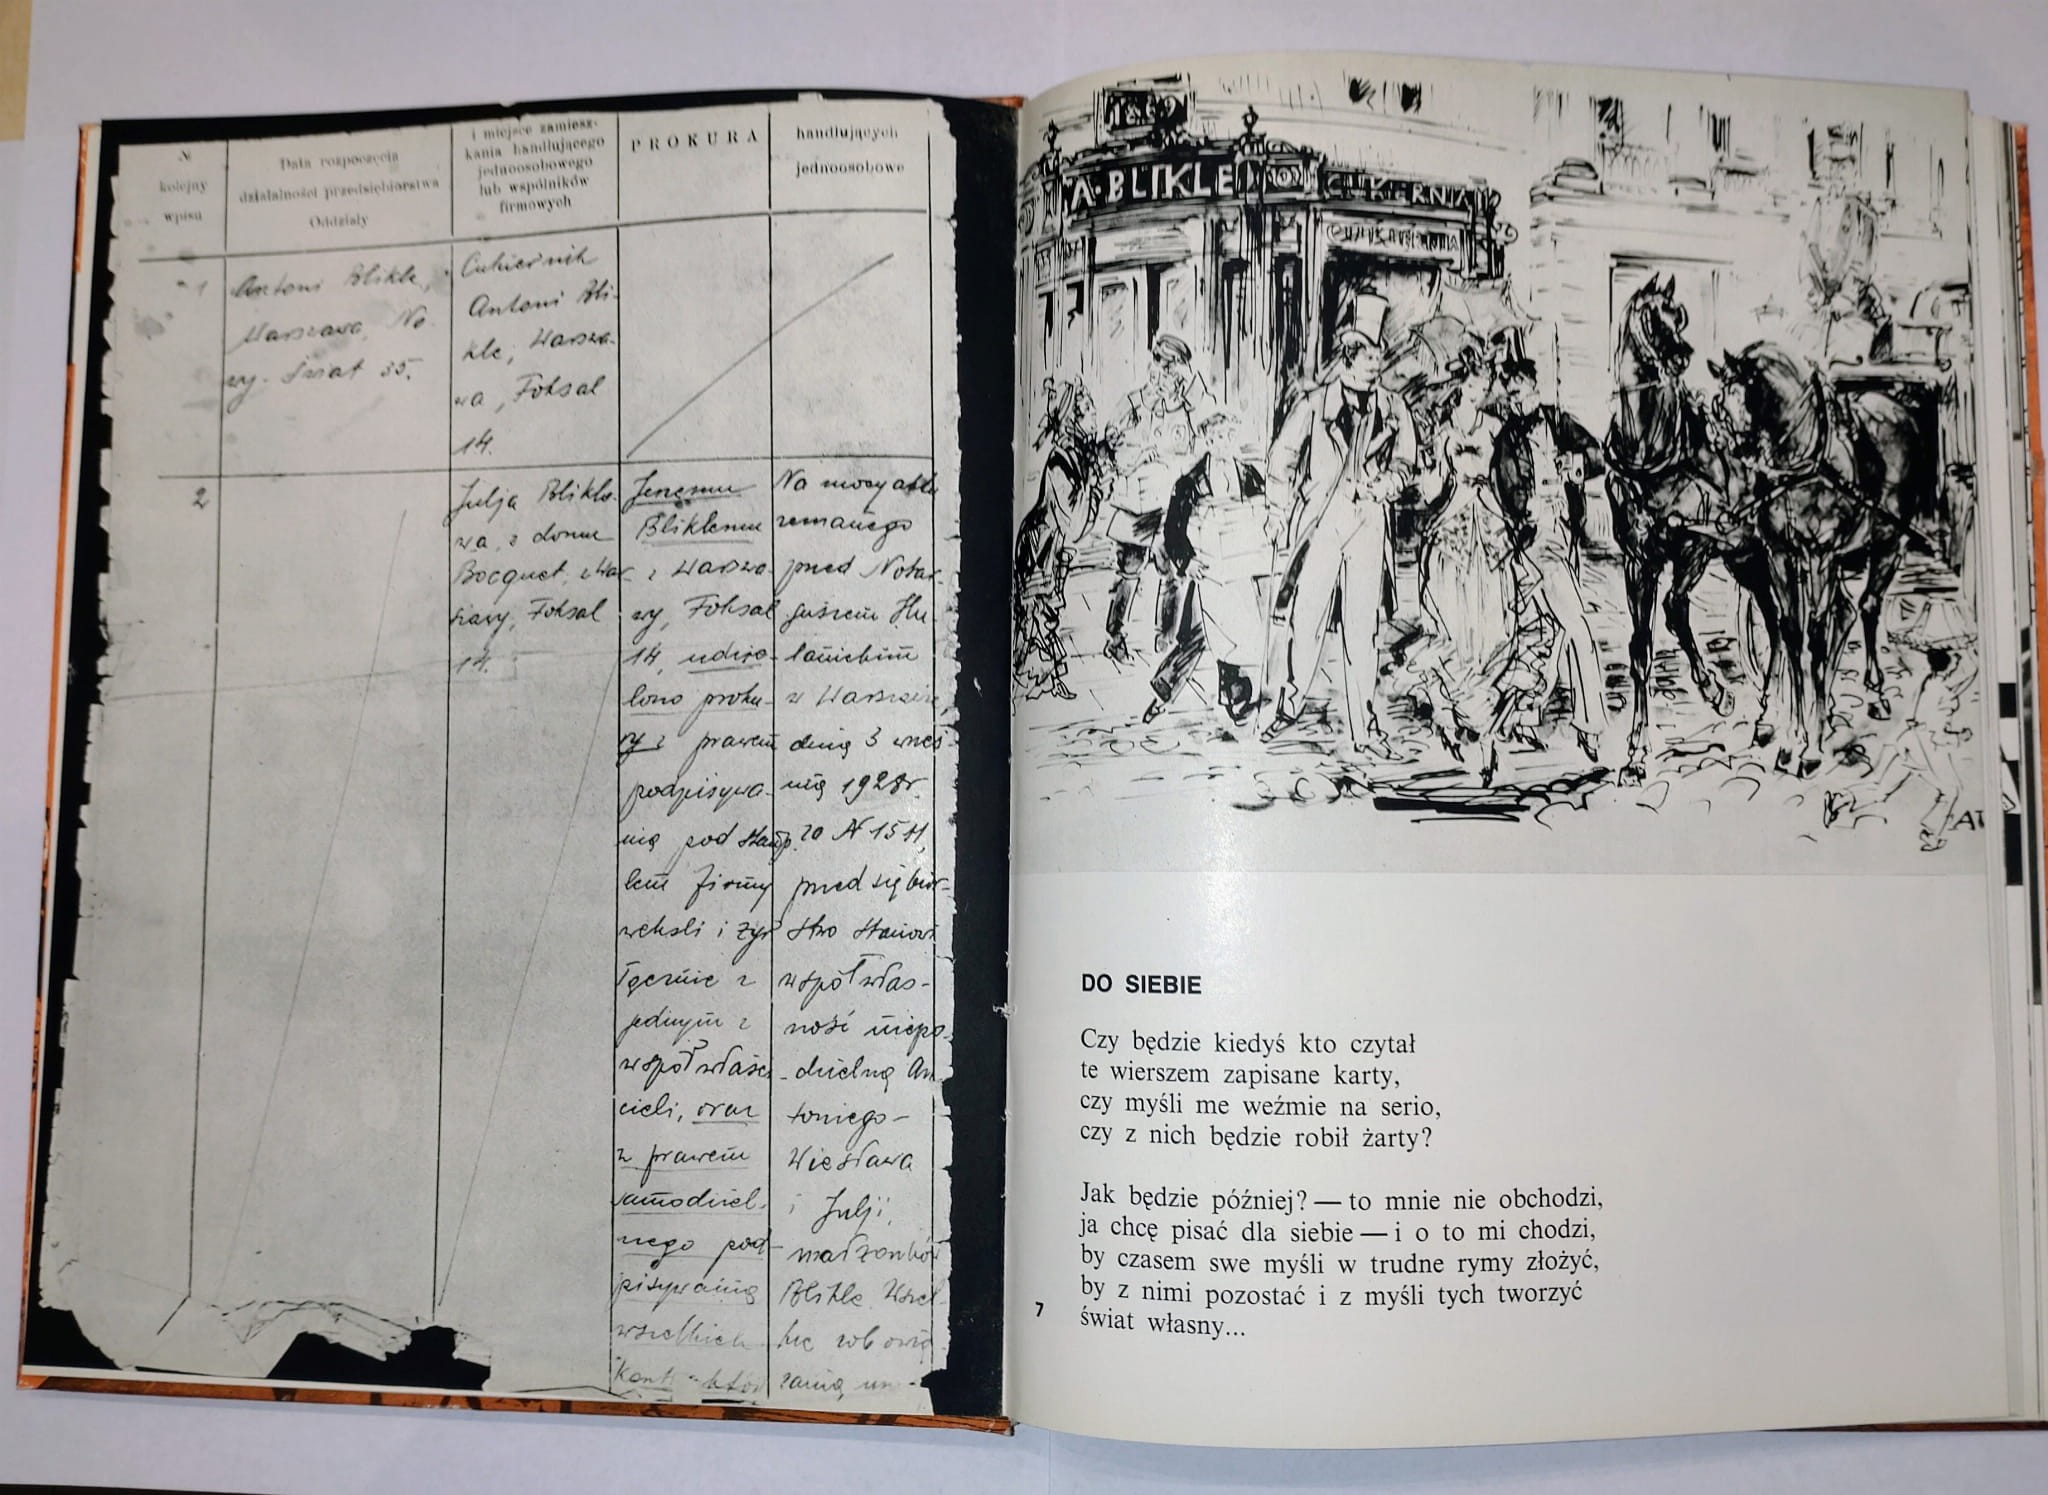 №
kolejny
wpisu
Data rozpoczęcia
działalności przedsiębiorstwa
Oddziały
i miejsce zamiesz-
kania handlującego
jednoosobowego
lub wspólników
firmowych
PROKURA
handlujących
jednoosobowe
1
Antoni Blikle,
Warszawa, No-
wy-Świat 35.
Cukiernik
Antoni Bli-
kle, Warsza-
wa, Foksal
14.
2
Julja Bliklo-
wa, z domu
Bocquet, z War-
szawy, Foksal
14.
Jerzemu
Bliklemu
z Warsza-
wy, Foksal
14, udzie-
lono proku-
ry z prawem
podpisywa-
nia pod stemp-
lem firmy
weksli i żyr
łącznie z
jednym z
współwłaści-
cieli, oraz
z prawem
samodziel-
nego pod-
pisywania
wszelkich
kontraktów
Na mocy aktu
zeznanego
przed Notar-
juszem Hu-
lanickim
w Warszawie,
dnia 3 wrześ-
nia 1928r.
za № 1511,
przedsiębior-
stwo stanowi
współwłas-
ność niepo-
dzielną An-
toniego-
Wiesława
i Julji,
małżonków
Blikle. Wszel-
kie zobowią-
zania
1869
A·BLIKLE
CUKIERNIA
CUKIERNIA
AT
DO SIEBIE
Czy będzie kiedyś kto czytał
te wierszem zapisane karty,
czy myśli me weźmie na serio,
czy z nich będzie robił żarty?
Jak będzie później? — to mnie nie obchodzi,
ja chcę pisać dla siebie — i o to mi chodzi,
by czasem swe myśli w trudne rymy złożyć,
by z nimi pozostać i z myśli tych tworzyć
świat własny...
7